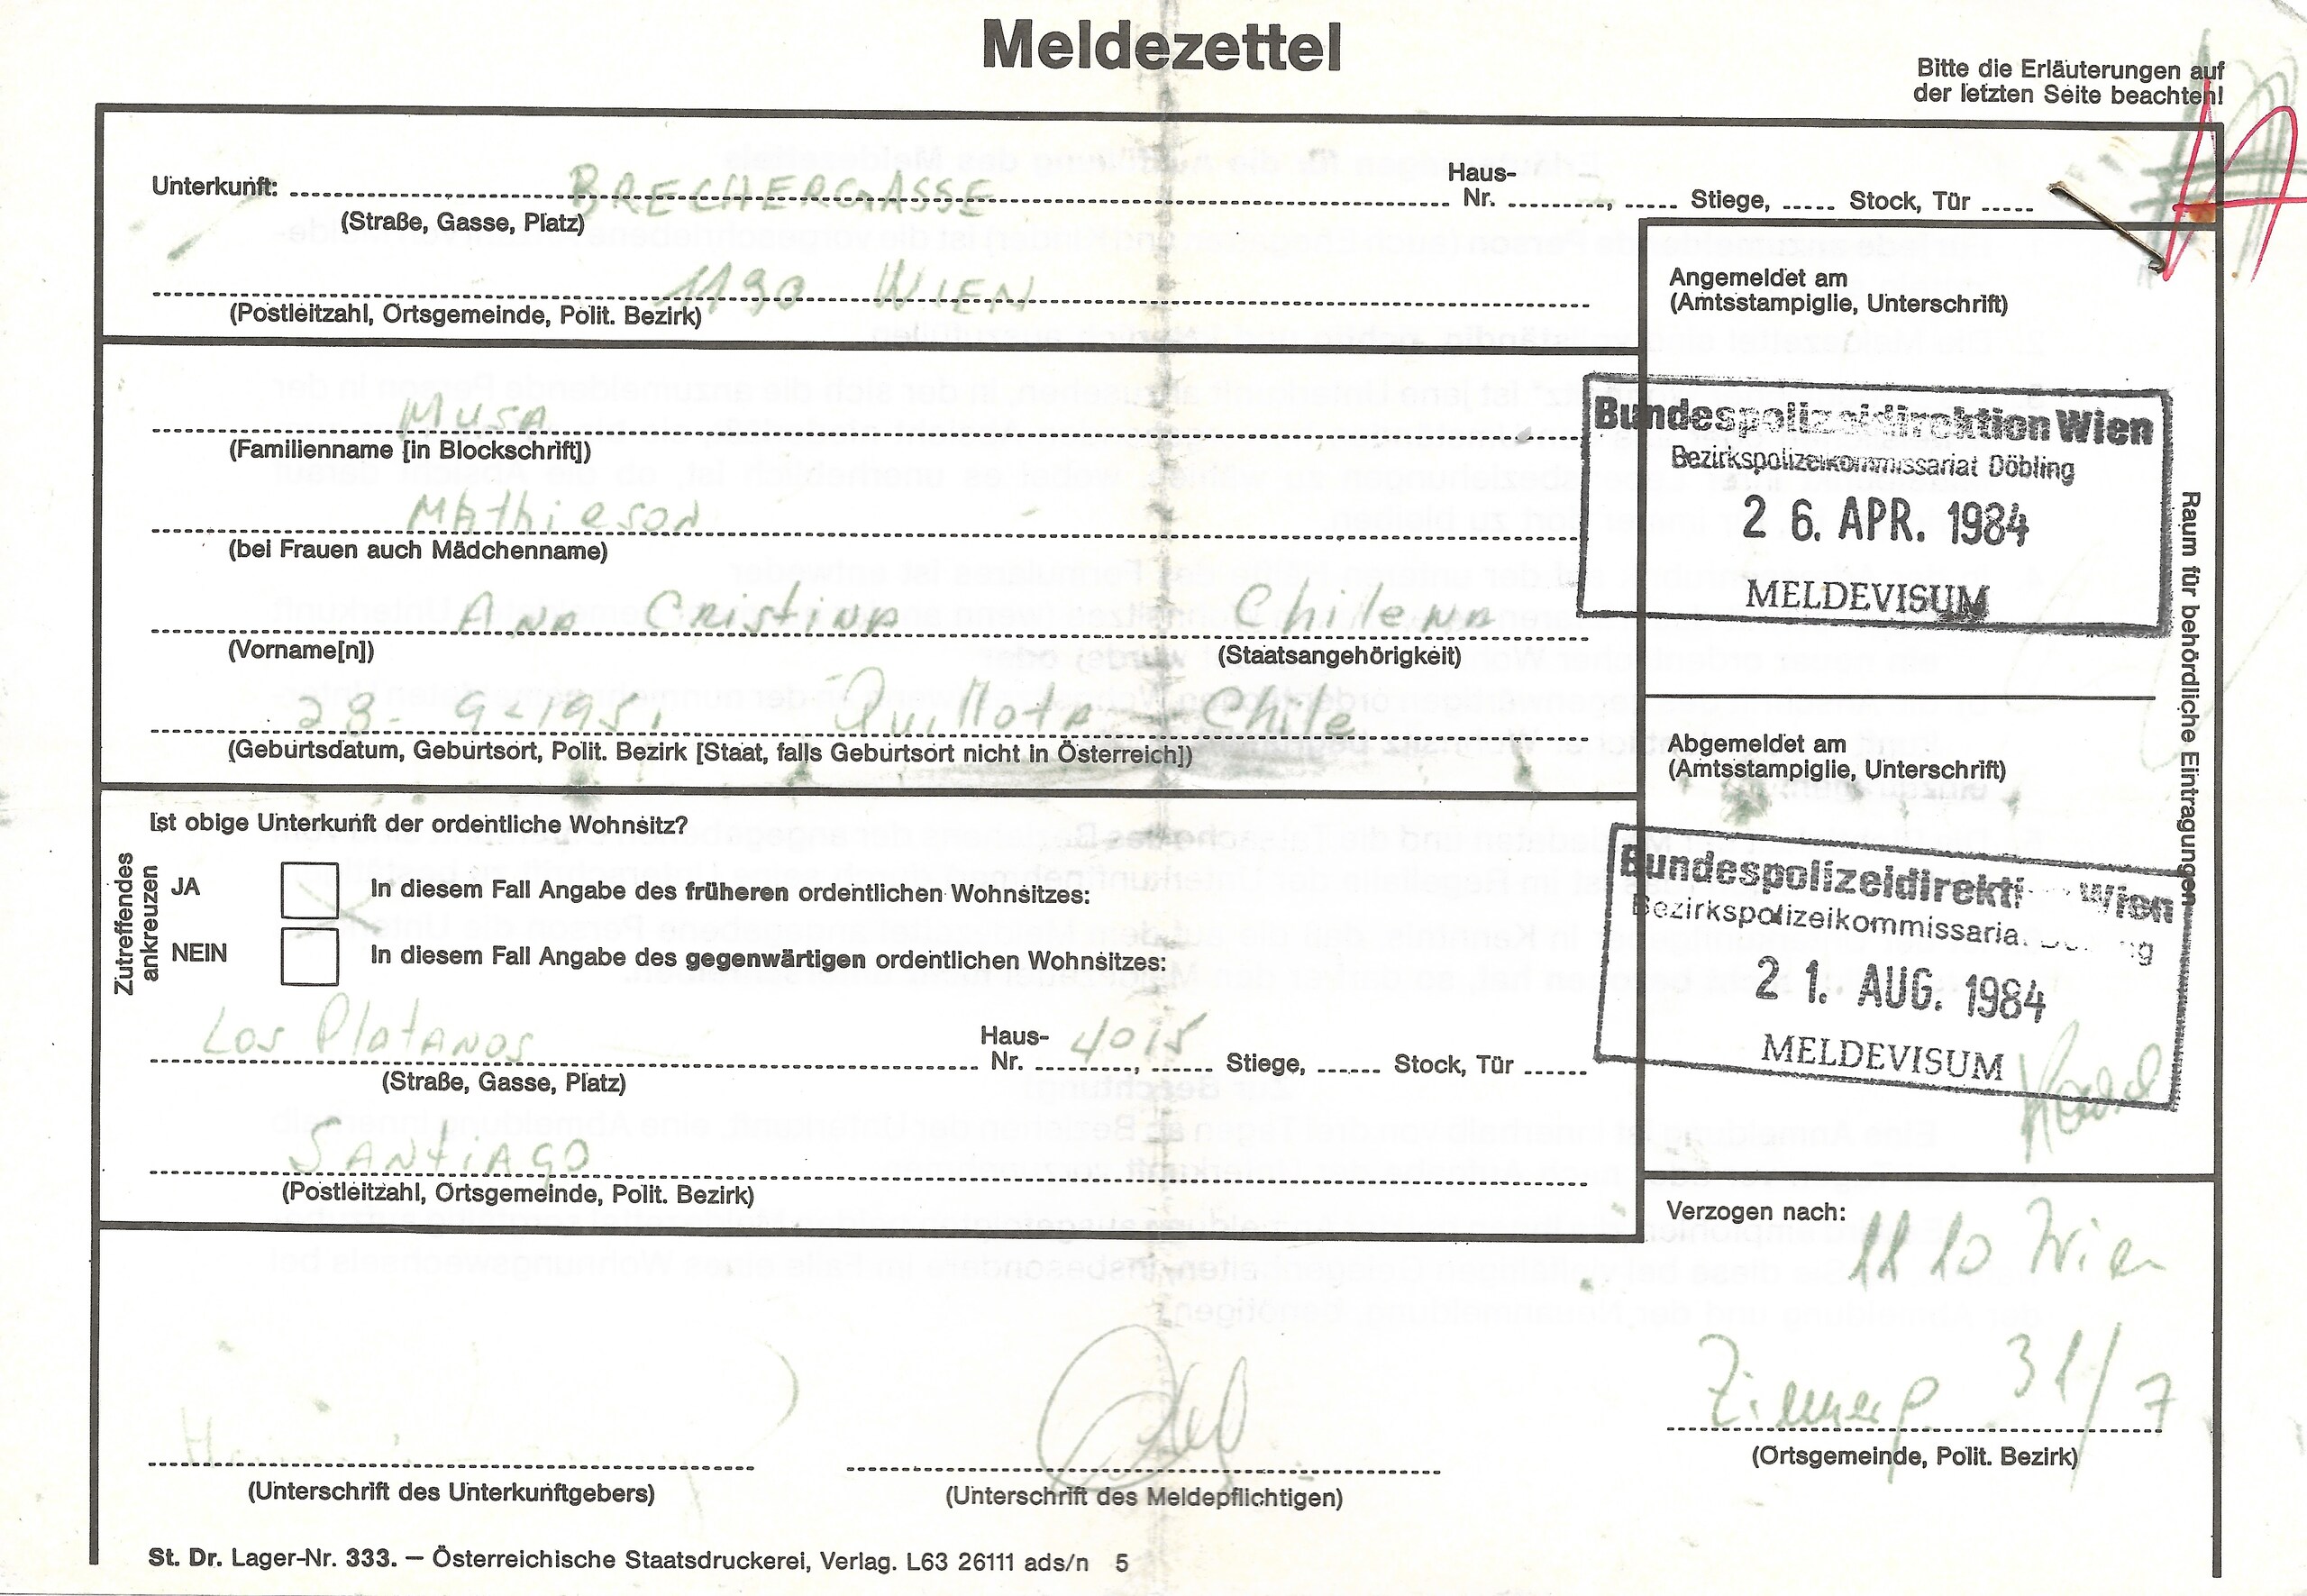 Meldezettel
Bitte die Erläuterungen auf
der letzten Seite beachten!
Unterkunft: BRECHERGASSE Haus-Nr. , Stiege, Stock, Tür
(Straße, Gasse, Platz)
1190 WIEN
(Postleitzahl, Ortsgemeinde, Polit. Bezirk)
MUSA
(Familienname [in Blockschrift])
MAthieson
(bei Frauen auch Mädchenname)
ANA CRistiNA Chilena
(Vorname[n]) (Staatsangehörigkeit)
28-9-1951 Quillota - Chile
(Geburtsdatum, Geburtsort, Polit. Bezirk [Staat, falls Geburtsort nicht in Österreich])
Ist obige Unterkunft der ordentliche Wohnsitz?
Zutreffendes
ankreuzen
JA In diesem Fall Angabe des früheren ordentlichen Wohnsitzes:
NEIN In diesem Fall Angabe des gegenwärtigen ordentlichen Wohnsitzes:
Los PlatANos Haus-Nr. 4015, Stiege, Stock, Tür
(Straße, Gasse, Platz)
SANtiAgo
(Postleitzahl, Ortsgemeinde, Polit. Bezirk)
Angemeldet am
(Amtsstampiglie, Unterschrift)
Bundespolizeidirektion Wien
Bezirkspolizeikommissariat Döbling
26. APR. 1984
MELDEVISUM
Abgemeldet am
(Amtsstampiglie, Unterschrift)
Bundespolizeidirekti Wien
Bezirkspolizeikommissaria
21. AUG. 1984
MELDEVISUM
Raum für behördliche Eintragungen
Verzogen nach:
1110 Wien
31/7
(Ortsgemeinde, Polit. Bezirk)
(Unterschrift des Unterkunftgebers)
(Unterschrift des Meldepflichtigen)
St. Dr. Lager-Nr. 333. — Österreichische Staatsdruckerei, Verlag. L63 26111 ads/n 5